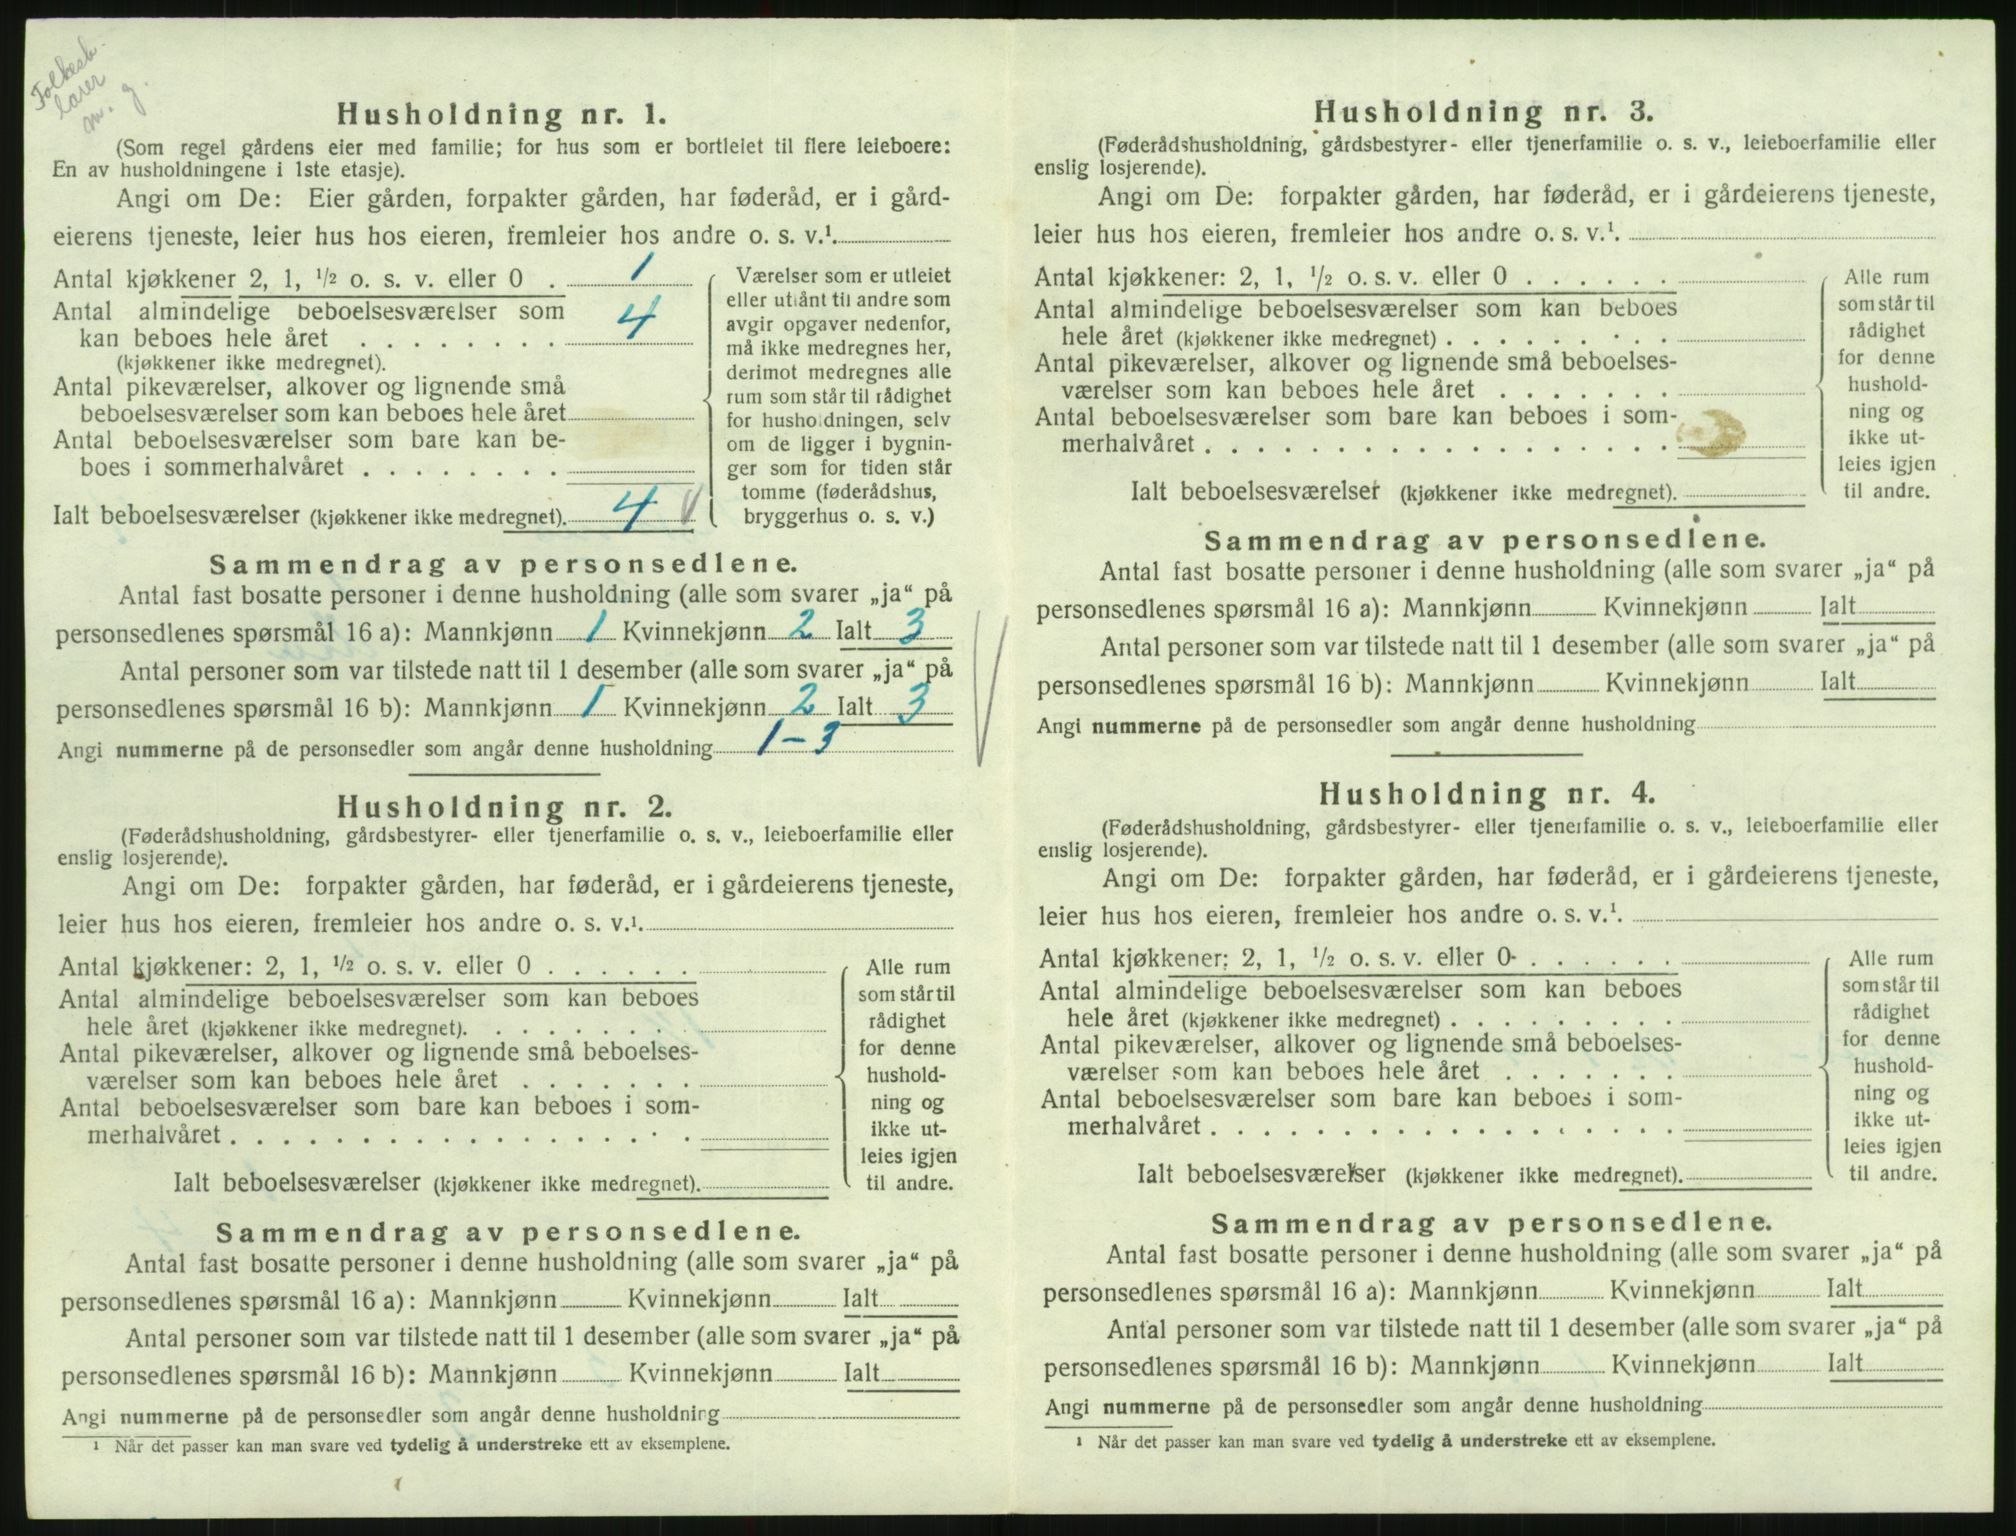 Folkesk.
lærer
m. g.
Husholdning nr. 1.
(Som regel gårdens eier med familie; for hus som er bortleiet til flere leieboere:
En av husholdningene i 1ste etasje).
Angi om De: Eier gården, forpakter gården, har føderåd, er i gård-
eierens tjeneste, leier hus hos eieren, fremleier hos andre o. s. v.¹.
Antal kjøkkener 2, 1, ½ o. s. v. eller 0 . 1
Antal almindelige beboelsesværelser som
kan beboes hele året . . . . . . . . 4
(kjøkkener ikke medregnet).
Antal pikeværelser, alkover og lignende små
beboelsesværelser som kan beboes hele året
Antal beboelsesværelser som bare kan be-
boes i sommerhalvåret . . . . . . . .
Ialt beboelsesværelser (kjøkkener ikke medregnet). 4
Værelser som er utleiet
eller utlånt til andre som
avgir opgaver nedenfor,
må ikke medregnes her,
derimot medregnes alle
rum som står til rådighet
for husholdningen, selv
om de ligger i bygnin-
ger som for tiden står
tomme (føderådshus,
bryggerhus o. s. v.)
Sammendrag av personsedlene.
Antal fast bosatte personer i denne husholdning (alle som svarer „ja“ på
personsedlenes spørsmål 16 a): Mannkjønn 1 Kvinnekjønn 2 Ialt 3
Antal personer som var tilstede natt til 1 desember (alle som svarer „ja“ på
personsedlenes spørsmål 16 b): Mannkjønn 1 Kvinnekjønn 2 Ialt 3
Angi nummerne på de personsedler som angår denne husholdning 1-3
Husholdning nr. 2.
(Føderådshusholdning, gårdsbestyrer- eller tjenerfamilie o. s. v., leieboerfamilie eller
enslig losjerende).
Angi om De: forpakter gården, har føderåd, er i gårdeierens tjeneste,
leier hus hos eieren, fremleier hos andre o. s. v.¹.
Antal kjøkkener: 2, 1, ½ o. s. v. eller 0 . . . . . .
Antal almindelige beboelsesværelser som kan beboes
hele året (kjøkkener ikke medregnet). . . . . . . . .
Antal pikeværelser, alkover og lignende små beboelses-
værelser som kan beboes hele året . . . . . . .
Antal beboelsesværelser som bare kan beboes i som-
merhalvåret . . . . . . . . . . . . . . . . . .
Ialt beboelsesværelser (kjøkkener ikke medregnet).
Alle rum
som står til
rådighet
for denne
hushold-
ning og
ikke ut-
leies igjen
til andre.
Sammendrag av personsedlene.
Antal fast bosatte personer i denne husholdning (alle som svarer „ja“ på
personsedlenes spørsmål 16 a): Mannkjønn Kvinnekjønn Ialt
Antal personer som var tilstede natt til 1 desember (alle som svarer „ja“ på
personsedlenes spørsmål 16 b): Mannkjønn Kvinnekjønn Ialt
Angi nummerne på de personsedler som angår denne husholdning
¹ Når det passer kan man svare ved tydelig å understreke ett av eksemplene.
Husholdning nr. 3.
(Føderådshusholdning, gårdsbestyrer- eller tjenerfamilie o. s. v., leieboerfamilie eller
enslig losjerende).
Angi om De: forpakter gården, har føderåd, er i gårdeierens tjeneste,
leier hus hos eieren, fremleier hos andre o. s. v.¹.
Antal kjøkkener: 2, 1, ½ o. s. v. eller 0 . . . . . .
Antal almindelige beboelsesværelser som kan beboes
hele året (kjøkkener ikke medregnet) . . . . . . . . .
Antal pikeværelser, alkover og lignende små beboelses-
værelser som kan beboes hele året . . . . . . .
Antal beboelsesværelser som bare kan beboes i som-
merhalvåret . . . . . . . . . . . . . . . . . .
Ialt beboelsesværelser (kjøkkener ikke medregnet).
Alle rum
som står til
rådighet
for denne
hushold-
ning og
ikke ut-
leies igjen
til andre.
Sammendrag av personsedlene.
Antal fast bosatte personer i denne husholdning (alle som svarer „ja“ på
personsedlenes spørsmål 16 a): Mannkjønn Kvinnekjønn Ialt
Antal personer som var tilstede natt til 1 desember (alle som svarer „ja“ på
personsedlenes spørsmål 16 b): Mannkjønn Kvinnekjønn Ialt
Angi nummerne på de personsedler som angår denne husholdning
Husholdning nr. 4.
(Føderådshusholdning, gårdsbestyrer- eller tjenerfamilie o. s. v., leieboerfamilie eller
enslig losjerende).
Angi om De: forpakter gården, har føderåd, er i gårdeierens tjeneste,
leier hus hos eieren, fremleier hos andre o. s. v.¹.
Antal kjøkkener: 2, 1, ½ o. s. v. eller 0 . . . . . .
Antal almindelige beboelsesværelser som kan beboes
hele året (kjøkkener ikke medregnet) . . . . . . . . .
Antal pikeværelser, alkover og lignende små beboelses-
værelser som kan beboes hele året . . . . . . .
Antal beboelsesværelser som bare kan beboes i som-
merhalvåret . . . . . . . . . . . . . . . . . .
Ialt beboelsesværelser (kjøkkener ikke medregnet).
Alle rum
som står til
rådighet
for denne
hushold-
ning og
ikke ut-
leies igjen
til andre.
Sammendrag av personsedlene.
Antal fast bosatte personer i denne husholdning (alle som svarer „ja“ på
personsedlenes spørsmål 16 a): Mannkjønn Kvinnekjønn Ialt
Antal personer som var tilstede natt til 1 desember (alle som svarer „ja“ på
personsedlenes spørsmål 16 b): Mannkjønn Kvinnekjønn Ialt
Angi nummerne på de personsedler som angår denne husholdning
¹ Når det passer kan man svare ved tydelig å understreke ett av eksemplene.